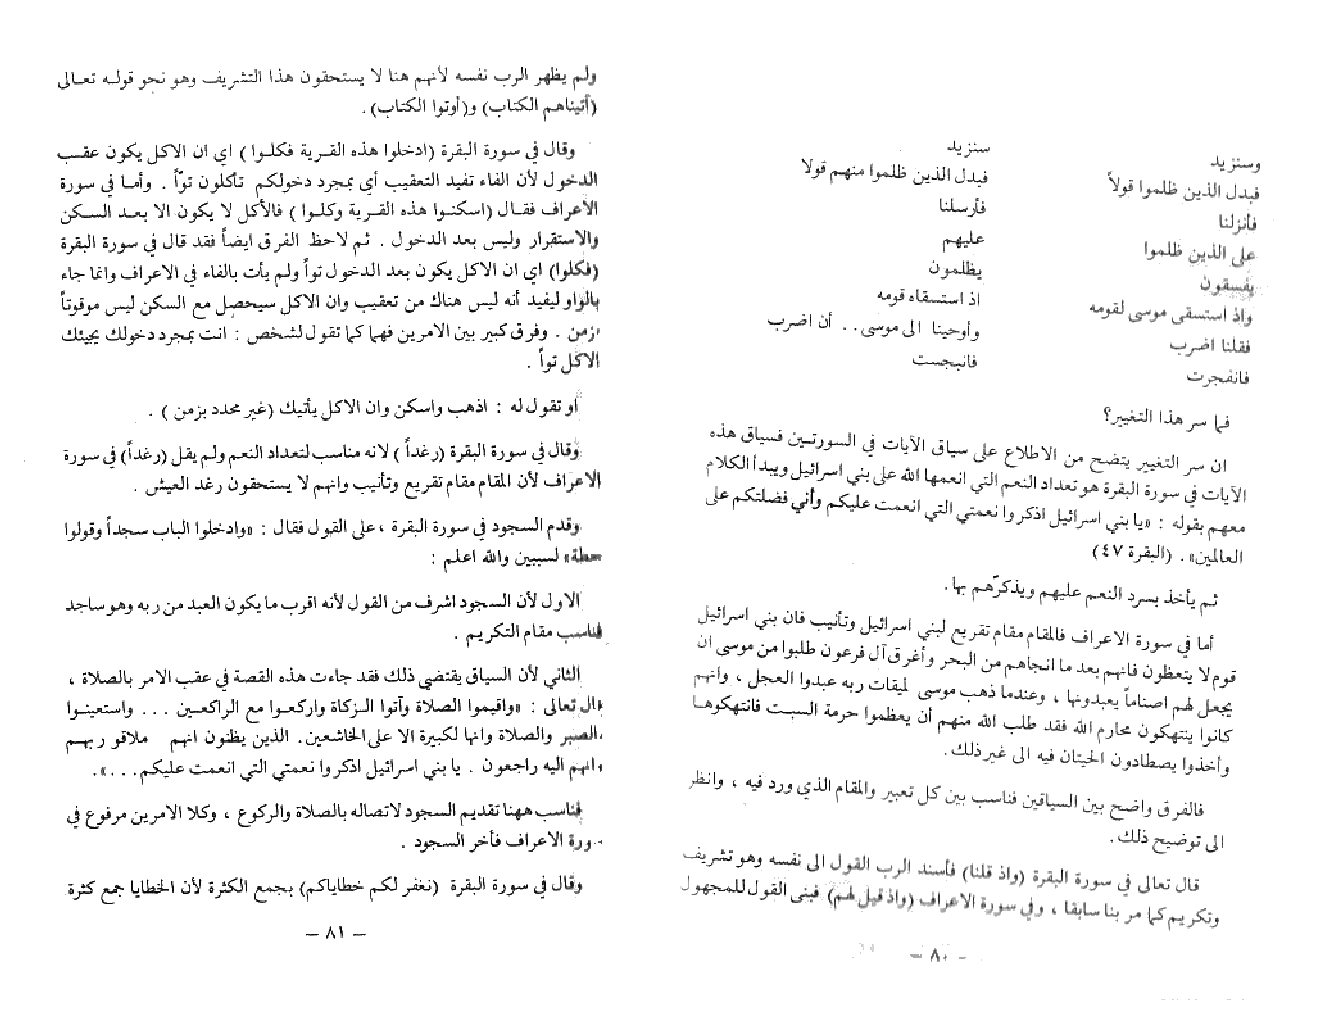 وسنزيد
سنزيد
فبدل الذين ظلموا قولاً
فبدل الذين ظلموا منهم قولا
فأنزلنا
فأرسلنا
على الذين ظلموا
عليهم
يفسقون
يظلمون
واذ استسقى موسى لقومه
اذ استسقاه قومه
فقلنا اضرب
وأوحينا الى موسى.. أن اضرب
فانفجرت
فانبجست
فما سر هذا التغيير؟
ان سر التغيير يتضح من الاطلاع على سياق الآيات في السورتين فسياق هذه
الآيات في سورة البقرة هو تعداد النعم التي انعمها الله على بني اسرائيل ويبدأ الكلام
معهم بقوله : «يا بني اسرائيل اذكروا نعمتي التي انعمت عليكم وأني فضلتكم على
العالمين» . (البقرة ٤٧)
ثم يأخذ بسرد النعم عليهم ويذكرّهم بها.
أما في سورة الاعراف فالمقام مقام تقريع لبني اسرائيل وتأنيب فان بني اسرائيل
قوم لا يتعظون فانهم بعد ما انجاهم من البحر وأغرق آل فرعون طلبوا من موسى ان
يجعل لهم اصناماً يعبدونها ، وعندما ذهب موسى لميقات ربه عبدوا العجل ، وانهم
كانوا ينتهكون محارم الله فقد طلب الله منهم أن يعظموا حرمة السبت فانتهكوها
وأخذوا يصطادون الحيتان فيه الى غير ذلك.
فالفرق واضح بين السياقين فناسب بين كل تعبير والمقام الذي ورد فيه ، وانظر
الى توضيح ذلك.
قال تعالى في سورة البقرة (واذ قلنا) فأسند الرب القول الى نفسه وهو تشريف
وتكريم كما مر بنا سابقا ، وفي سورة الاعراف (واذ قيل لهم) فبنى القول للمجهول
– ٨٠ –
ولم يظهر الرب نفسه لأنهم هنا لا يستحقون هذا التشريف وهو نحو قوله تعالى
(أتيناهم الكتاب) و(أوتوا الكتاب) .
وقال في سورة البقرة (ادخلوا هذه القرية فكلوا) اي ان الاكل يكون عقب
الدخول لأن الفاء تفيد التعقيب أي بمجرد دخولكم تأكلون تواً . وأما في سورة
الأعراف فقال (اسكنوا هذه القرية وكلوا) فالأكل لا يكون الا بعد السكن
والاستقرار وليس بعد الدخول . ثم لاحظ الفرق ايضاً فقد قال في سورة البقرة
(فكلوا) اي ان الاكل يكون بعد الدخول تواً ولم يأت بالفاء في الاعراف وانما جاء
بالواو ليفيد أنه ليس هناك من تعقيب وان الاكل سيحصل مع السكن ليس مرقوتاً
بزمن . وفرق كبير بين الامرين فهما كما تقول لشخص : انت بمجرد دخولك يجيئك
الاكل تواً .
او تقول له : اذهب واسكن وان الاكل يأتيك (غير محدد بزمن) .
وقال في سورة البقرة (رغداً) لانه مناسب لتعداد النعم ولم يقل (رغداً) في سورة
الاعراف لأن المقام مقام تقريع وتأنيب وانهم لا يستحقون رغد العيش .
وقدم السجود في سورة البقرة ، على القول فقال : «وادخلوا الباب سجداً وقولوا
حطة» لسببين والله اعلم :
الاول لأن السجود اشرف من القول لأنه اقرب ما يكون العبد من ربه وهو ساجد
فناسب مقام التكريم .
الثاني لأن السياق يقتضي ذلك فقد جاءت هذه القصة في عقب الامر بالصلاة ،
قال تعالى : «واقيموا الصلاة وآتوا الزكاة واركعوا مع الراكعين ... واستعينوا
بالصبر والصلاة وانها لكبيرة الا على الخاشعين. الذين يظنون انهم ملاقو ربهم
وانهم اليه راجعون . يا بني اسرائيل اذكروا نعمتي التي انعمت عليكم...».
فناسب ههنا تقديم السجود لاتصاله بالصلاة والركوع ، وكلا الامرين مرفوع في
سورة الاعراف فأخر السجود .
وقال في سورة البقرة (نغفر لكم خطاياكم) بجمع الكثرة لأن الخطايا جمع كثرة
– ٨١ –